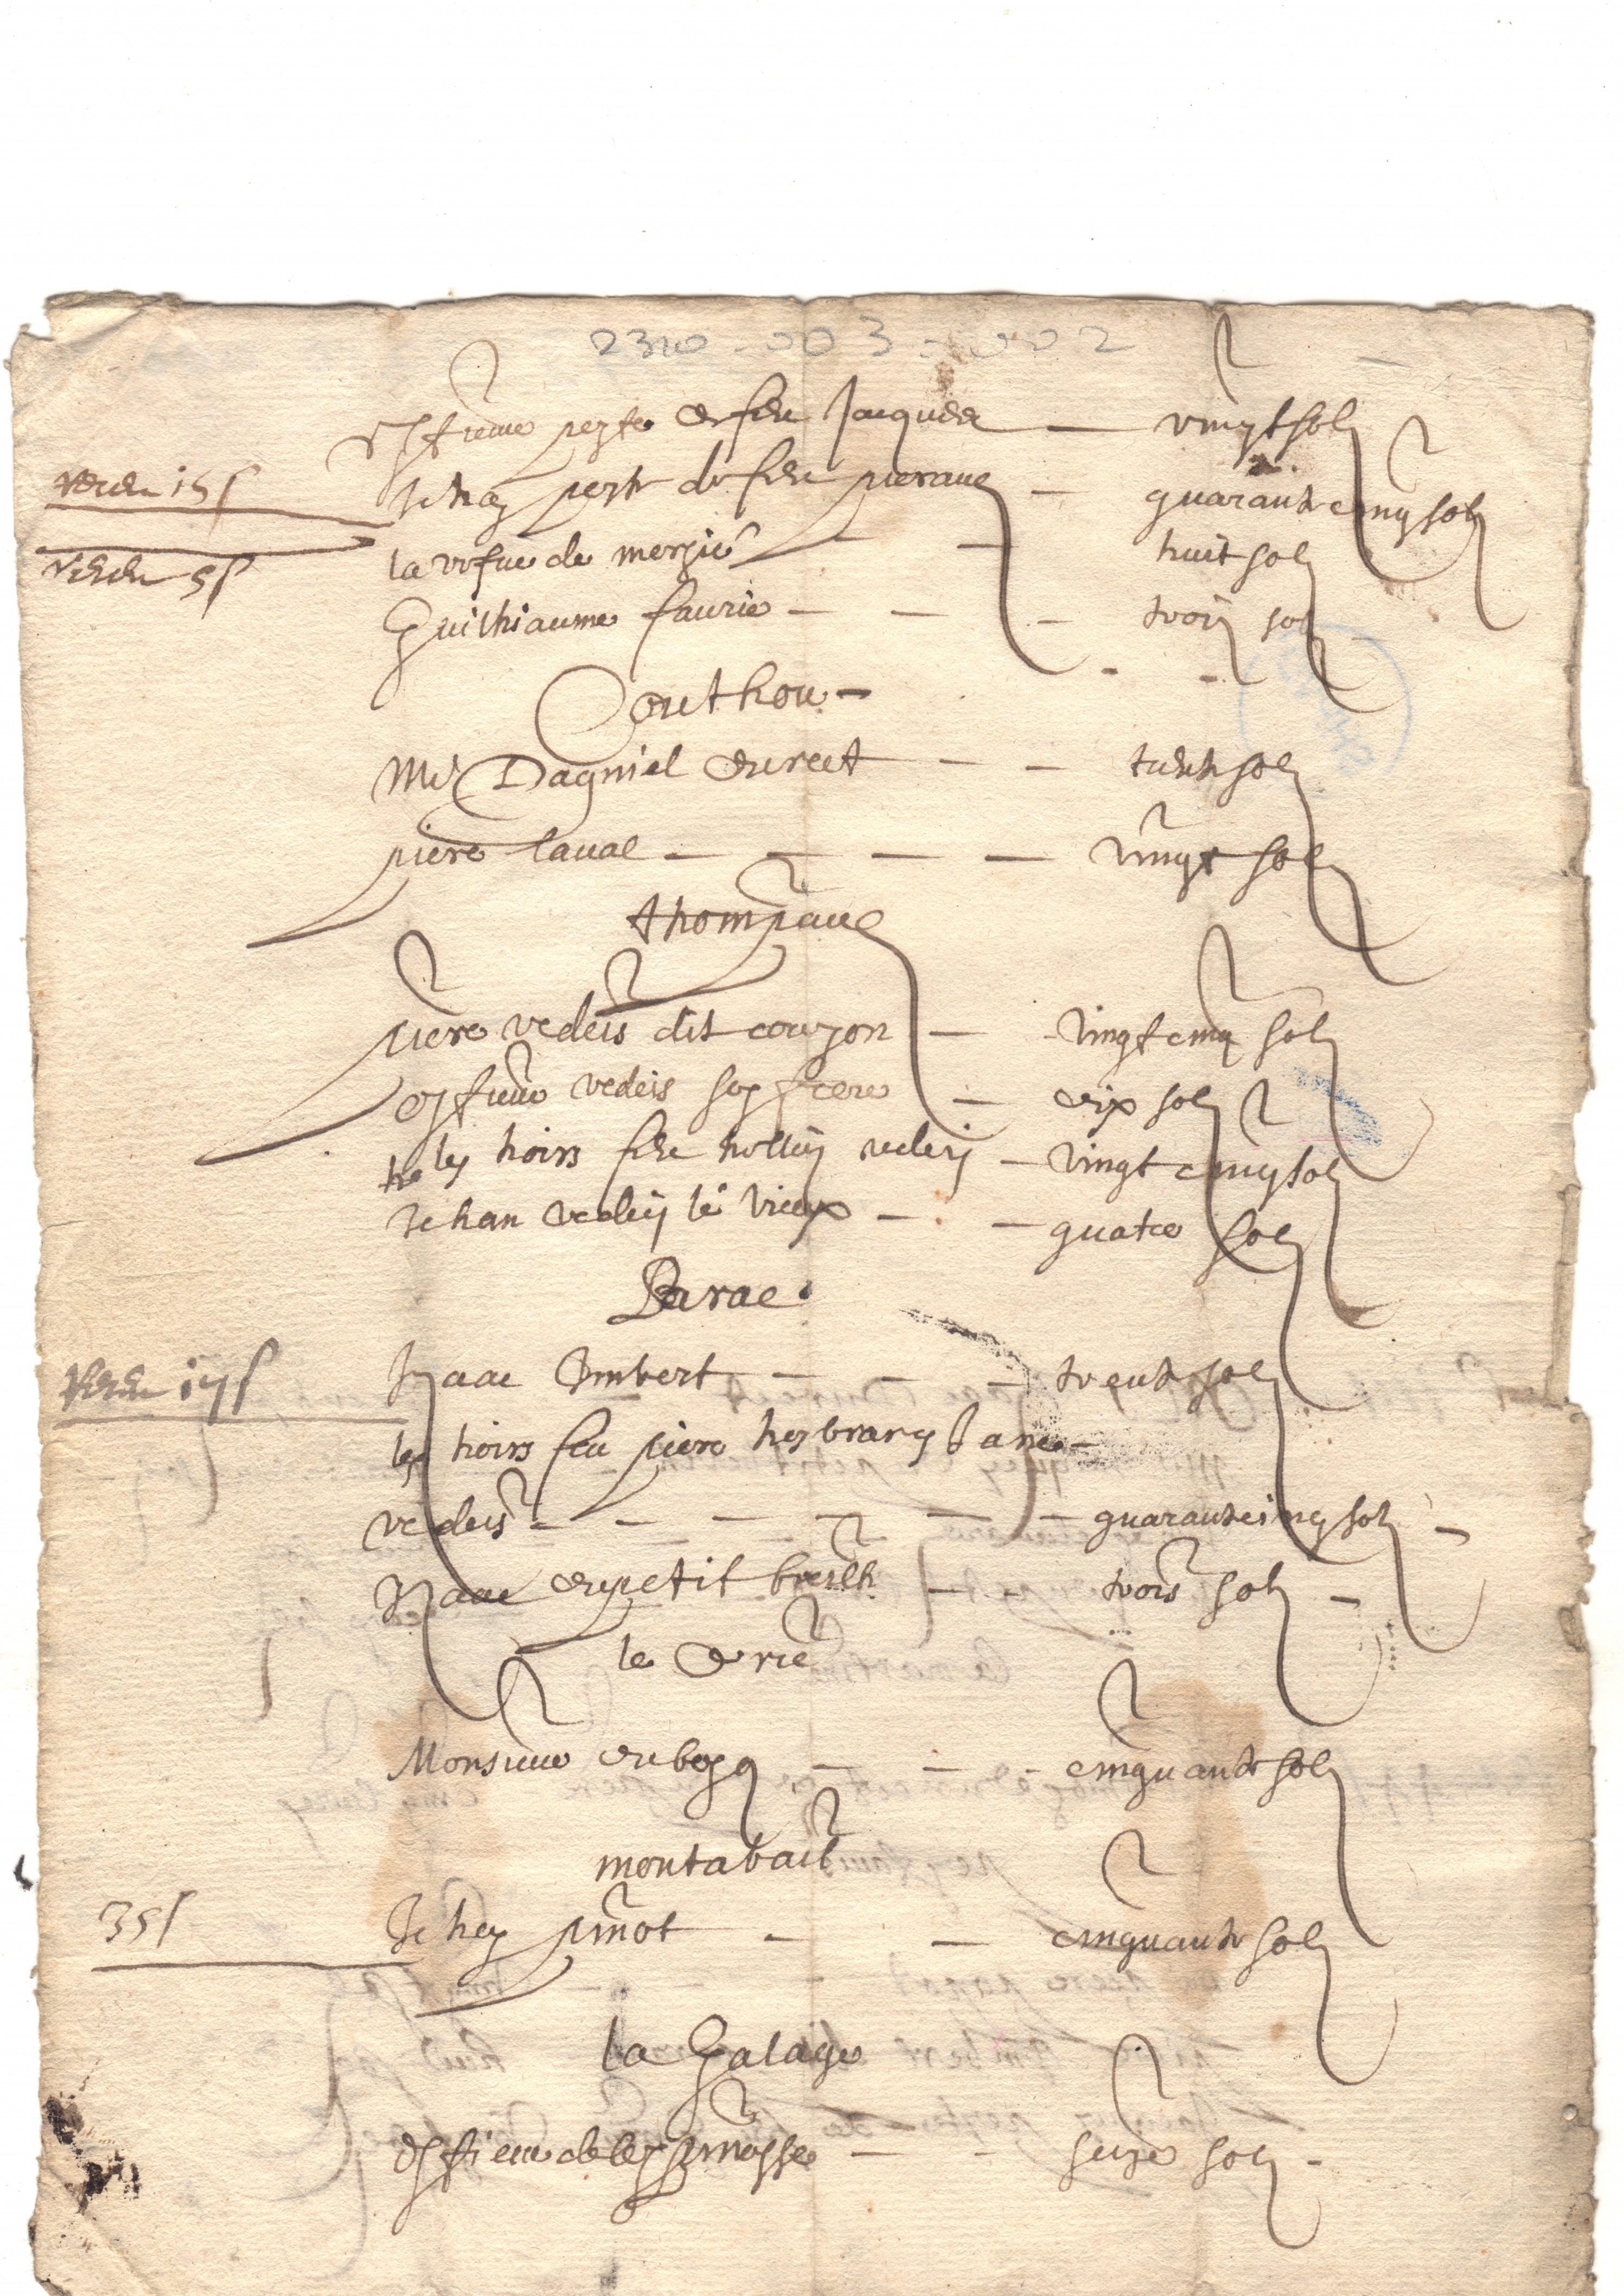 2310-003-002
Estienne peyte de feu Jacques — vingt solz
receu 15 s Jehan peyte de feu pierave — quarante cinq solz
la vefue de mergie — huit solz
receu 5 s
Guilhiaume faurie — — trois solz
Couthou —
Me Dagniel duret — — trente solz
piere laval — — — — vingt solz
thompaue
piere vedeis dit couzon — vingt cinq solz
estiene vedeis son frere — dix solz
les hoirs feu vedeis — vingt cinq solz
Jehan vedeis le vieux — — quatre solz
Barac
receu 17 s Izaac Imbert — — — trente solz
les hoirs feu piere Jane —
vedeis — — — — — — quarante cinq solz —
Izaac du petit breilh — — trois solz —
le
Monsieur du bosq — — — cinquante solz
montabail
35 s Jehan pinot — — cinquante solz
la Galage
Estiene — — seize solz —